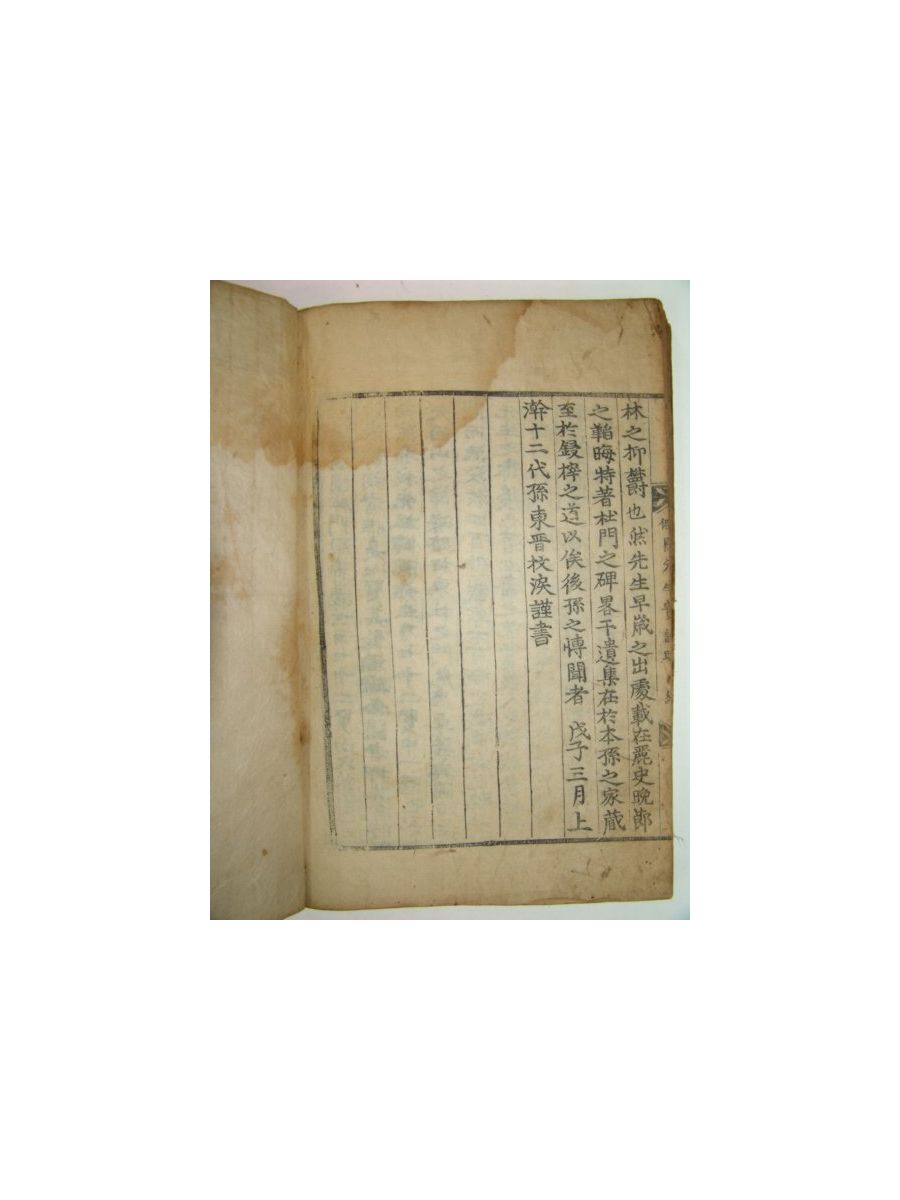 林之抑欝也然先生早歲之出處載在麗史晩節
之韜晦特著杜門之碑畧干遺集在於本孫之家藏
至於鋟榟之道以俟後孫之愽聞者 戊子三月上
澣十二代孫東晋抆淚謹書
先生